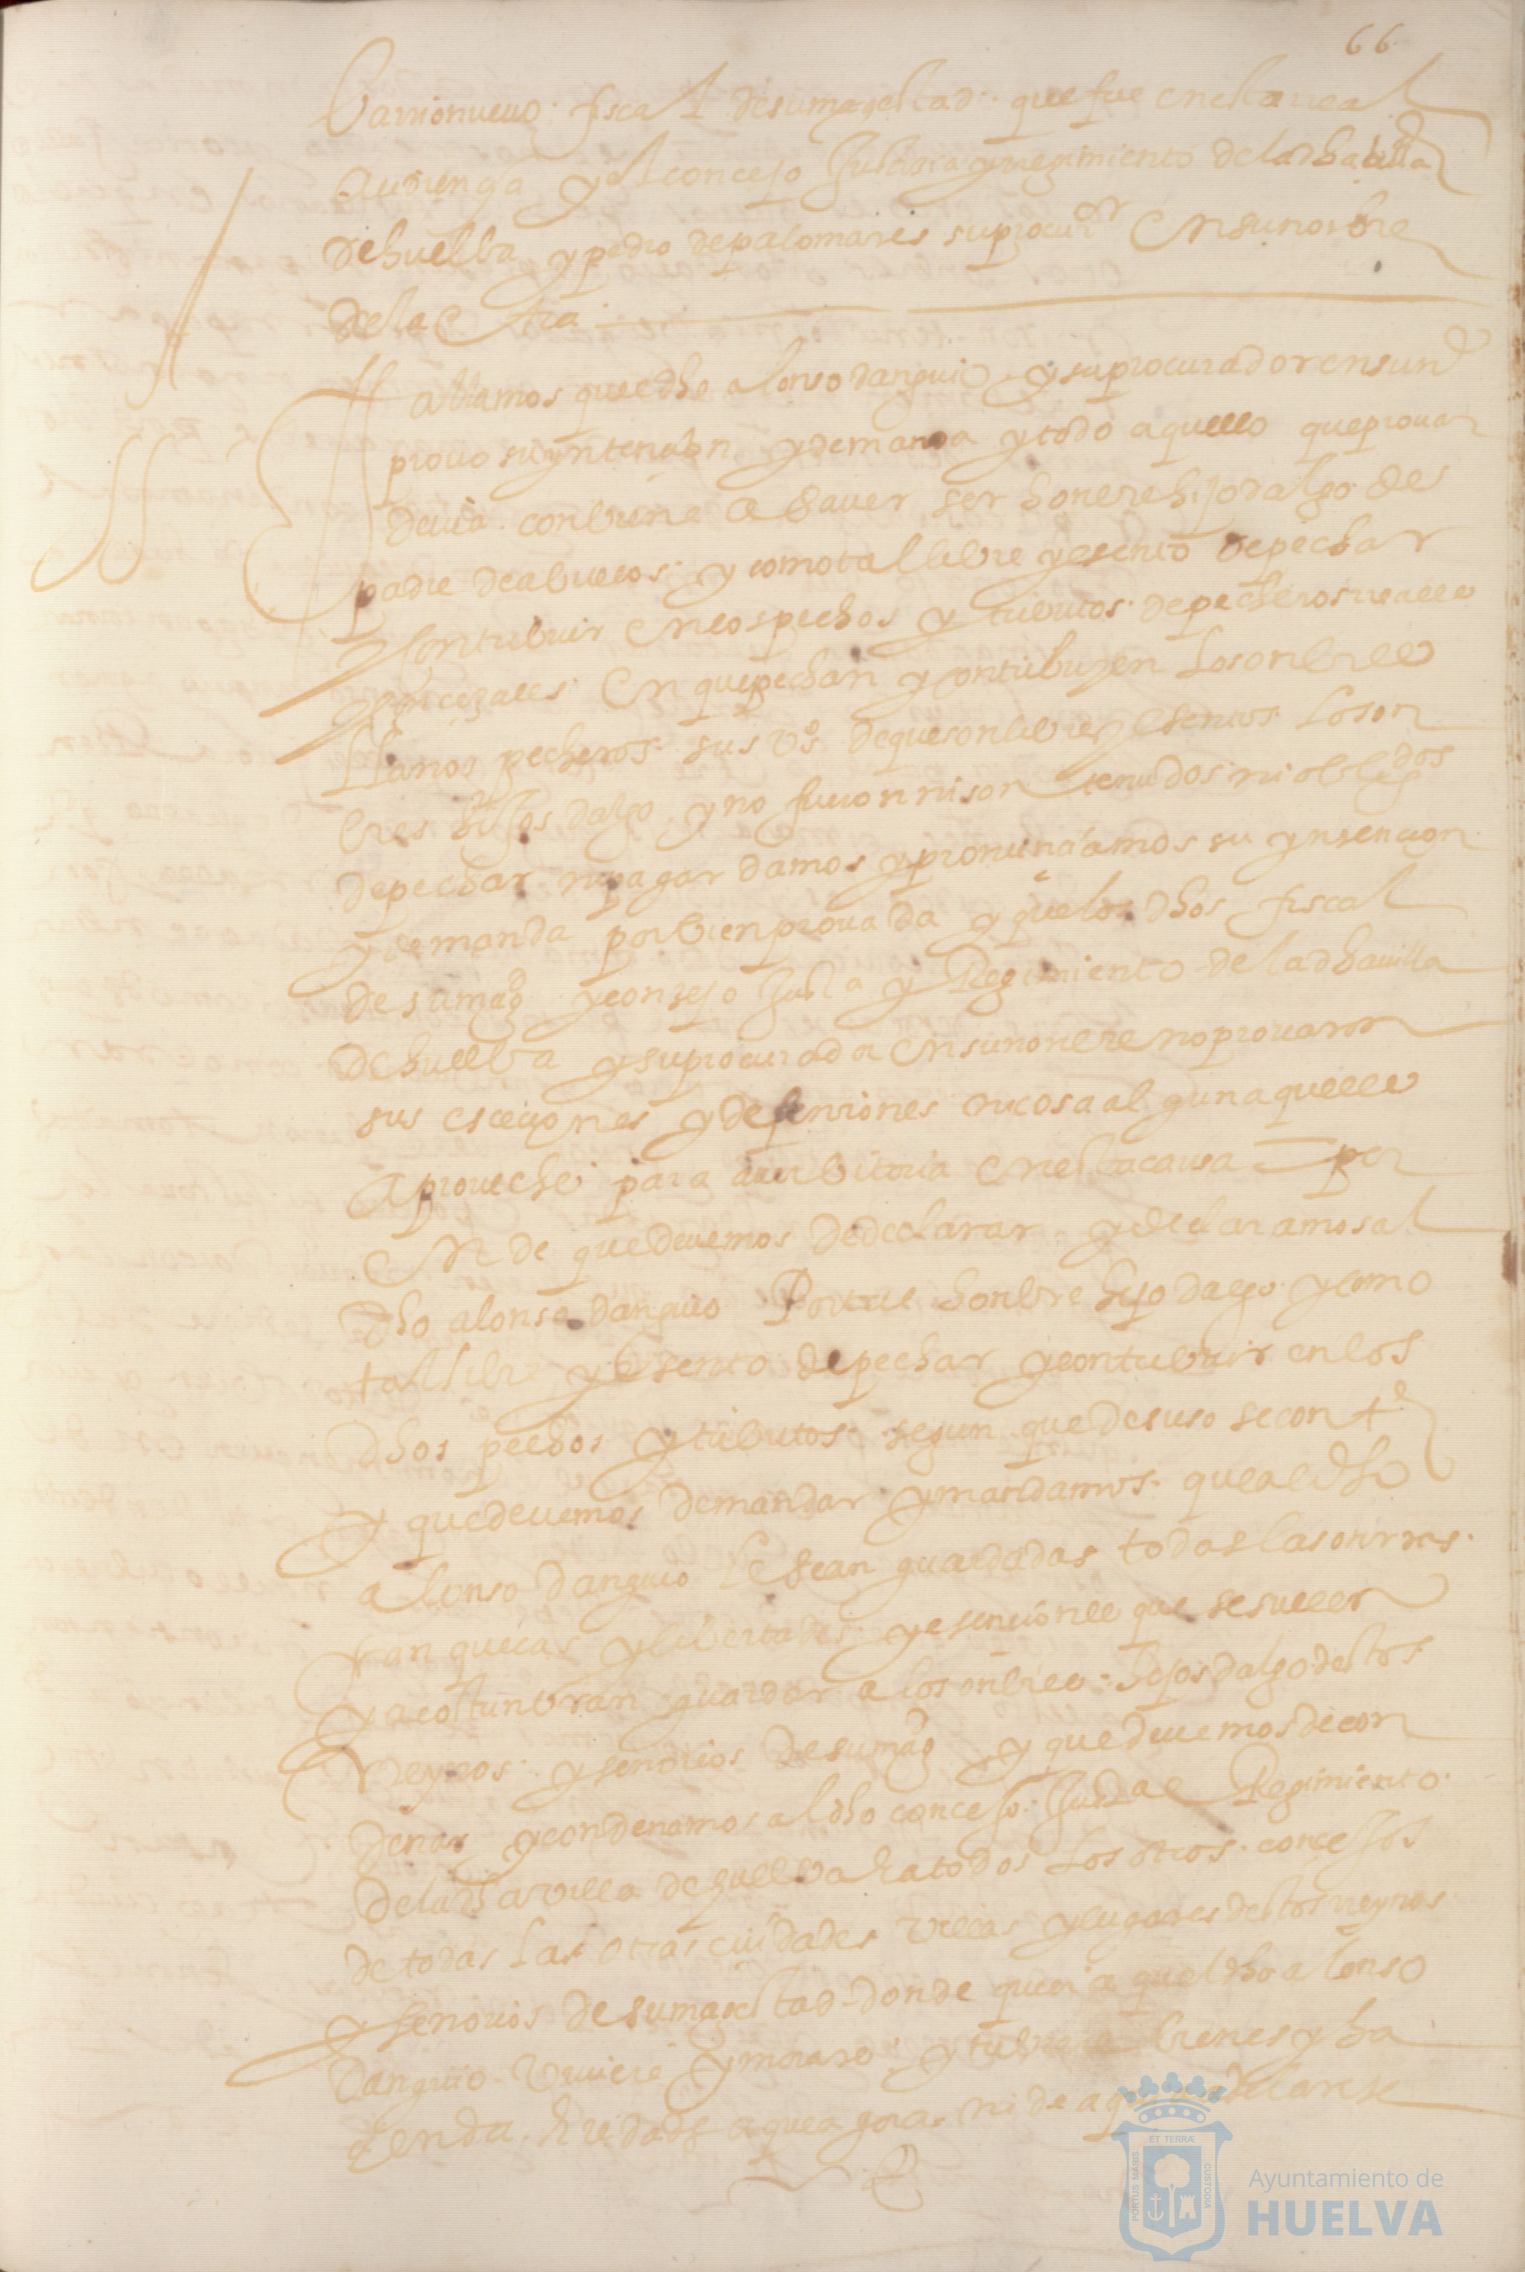 66
barrionuevo fiscal de su magestad que fue en esta real
audiençia y al concejo Justicia y regimiento de la dha villa
de huelba y pedro de palomares su procuror en su nonbre
de la otra
ffallamos que el dho alonso danguio y su procurador en su ne
provo su yntençion y demanda y todo aquello que provar
devia conbiene a saver ser honbre hijodalgo de
padre de abuelos y como tal libre y esento de pechar
y contribuir en los pechos y tributos de pecheros reales
y conçejales en que pechan y contribuyen los onbres
llanos pecheros sus vos de que son libres y esentos los on
bres hijosdalgo y no fueron ni son tenudos ni obligados
de pechar ni pagar damos y pronunciamos su yntencion
y demanda por bien provada y que los dhos fiscal
de su magd y consejo Justa y Regimiento de la dha villa
de huelba y su procurador en su nonbre no provaron
sus eseciones y defensiones ni cosa alguna que les
aproveche para aver bitoria en esta causa por
ende que devemos de declarar y declaramos al
dho alonso danguio por tal honbre hijodalgo y como
tal libre y esento de pechar y contribuir en los
dhos pechos y tributos segun que de suso se conte
y que devemos de mandar y mandamos que al dho
alonso danguio le sean guardadas todas las onrras
franqueças y libertades y esenciones que se suelen
y acostunbran guardar a los onbres hijosdalgo destos
reynos y señorios de su magd y que devemos de con
denar y condenamos al dho concejo Justa e Regimiento
de la dha villa de huelba e a todos los otros conçejos
de todas las otras ciudades villas y lugares destos reynos
y señorios de su magestad donde quiera que el dho alonso
danguio viviere y morare y tubiere bienes y ha
zienda heredade a que agora ni de aqui adelante
ET TERRÆ
PORTUS MARIS
CUSTODIA
Ayuntamiento de
HUELVA